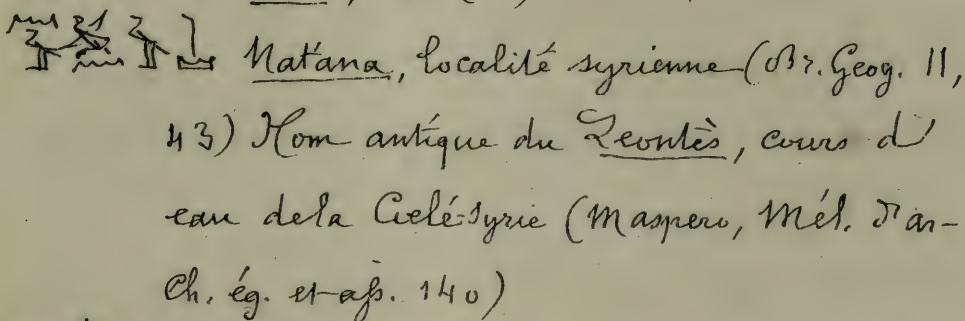 Natana, localité syrienne (Br. Geog. II,
43) Nom antique du Leontès, cours d'
eau de la Célé-syrie (Maspero, Mél. d'ar-
ch. ég. et ass. 140)